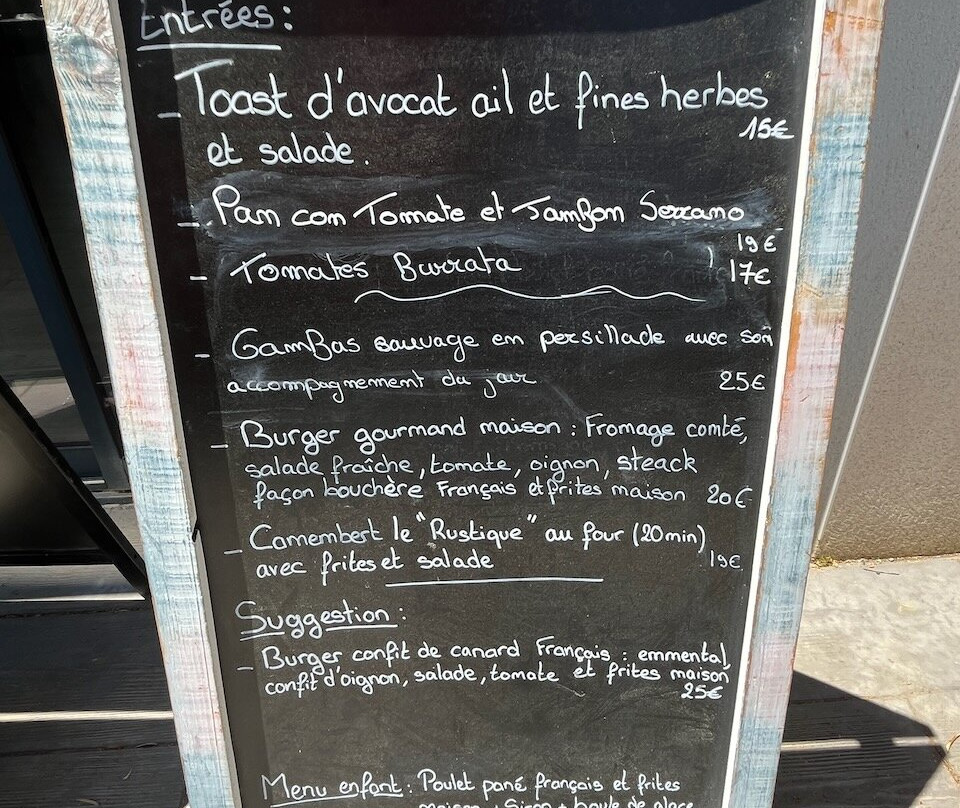 Entrées :
- Toast d'avocat ail et fines herbes
15€
et salade.
- Pan con Tomate et Jambon Serrano
19€
- Tomates Burrata 17€
- Gambas sauvage en persillade avec son
accompagnement du jour 25€
- Burger gourmand maison : Fromage comté,
salade fraîche, tomate, oignon, steack
façon bouchère Français et frites maison 20€
- Camembert le "Rustique" au four (20min)
avec frites et salade 19€
Suggestion :
- Burger confit de canard Français : emmental,
confit d'oignon, salade, tomate et frites maison
25€
Menu enfant : Poulet pané français et frites
maison + Sirop + boule de glace